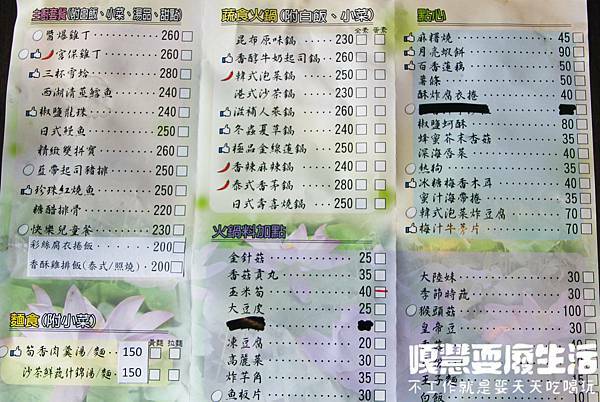 主廚套餐(附白飯、小菜、湯品、甜點)
醬爆雞丁 260
宮保雞丁 260
三杯雪蛤 280
西湖清蒸鱈魚 240
椒鹽龍珠 240
日式鰻魚 250
精緻雙拼寶 260
豆帶起司豬排 250
珍珠紅燒魚 250
糖醋排骨 220
快樂兒童餐 230
彩絲腐衣捲飯 200
香酥雞排飯(泰式/照燒) 200
麵食(附小菜)
黃麵 拉麵
筍香肉羹湯/麵 150
沙茶鮮菇什錦湯/麵 150
蔬食火鍋(附白飯、小菜)
全素 奶素
昆布原味鍋 230
香醇牛奶起司鍋 260
韓式泡菜鍋 250
港式沙茶鍋 250
滋補人蔘鍋 260
冬蟲夏草鍋 260
極品金線蓮鍋 260
香辣麻辣鍋 250
泰式香茅鍋 250
日式壽喜燒鍋 250
火鍋料加點
金針菇 25
香菇貢丸 35
玉米筍 40
大豆皮 35
凍豆腐 20
高麗菜 30
炸芋角 35
魚板片 30
點心
麻糬燒 45
月亮蝦餅 90
百香蓮藕 50
薯條 50
酥炸腐衣捲 40
椒鹽蚵酥 80
蜂蜜芥末杏菇 40
深海唇菜 40
熱狗 35
冰糖梅香木耳 40
蜜汁海帶捲 35
韓式泡菜炸豆腐 70
梅汁牛蒡片 70
大陸妹 30
季節時蔬 30
猴頭菇 100
皇帝豆 30
王子麵
白飯
嘎慧耍廢生活
不工作就是要天天吃喝玩